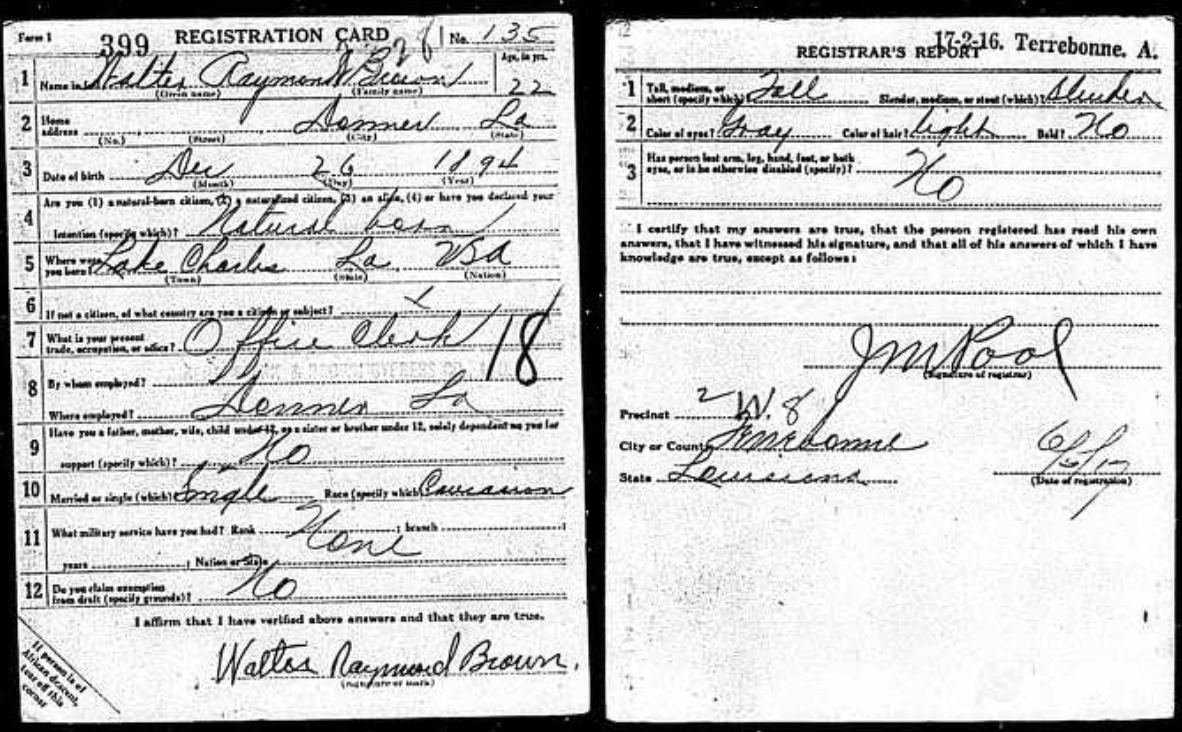 Form 1 399 REGISTRATION CARD 28 No. 135
1 Name in full Walter Raymond Brown Age, in yrs. 22
(Given name) (Family name)
2 Home address Donner La
(No.) (Street) (City) (State)
3 Date of birth Dec 26 1894
(Month) (Day) (Year)
4 Are you (1) a natural-born citizen, (2) a naturalized citizen, (3) an alien, (4) or have you declared your
intention (specify which)? Natural born
5 Where were you born? Lake Charles La USA
(Town) (State) (Nation)
6 If not a citizen, of what country are you a citizen or subject?
7 What is your present trade, occupation, or office? Office Clerk 18
8 By whom employed?
Where employed? Donner La
9 Have you a father, mother, wife, child under 12, or a sister or brother under 12, solely dependent on you for
support (specify which)? No
10 Married or single (which)? Single Race (specify which)? Caucasion
11 What military service have you had? Rank None ; branch ;
years ; Nation or State
12 Do you claim exemption from draft (specify grounds)? No
I affirm that I have verified above answers and that they are true.
Walter Raymond Brown.
(Signature or mark)
If person is of
African descent,
tear off this
corner
17-2-16. Terrebonne. A.
REGISTRAR'S REPORT
1 Tall, medium, or short (specify which)? Tall Slender, medium, or stout (which)? Slender
2 Color of eyes? Gray Color of hair? light Bald? No
3 Has person lost arm, leg, hand, foot, or both
eyes, or is he otherwise disabled (specify)? No
I certify that my answers are true, that the person registered has read his own
answers, that I have witnessed his signature, and that all of his answers of which I have
knowledge are true, except as follows:
JM Pool
(Signature of registrar)
Precinct 2 W. 8
City or County Terrebonne
State Louisiana
6/5/17
(Date of registration)